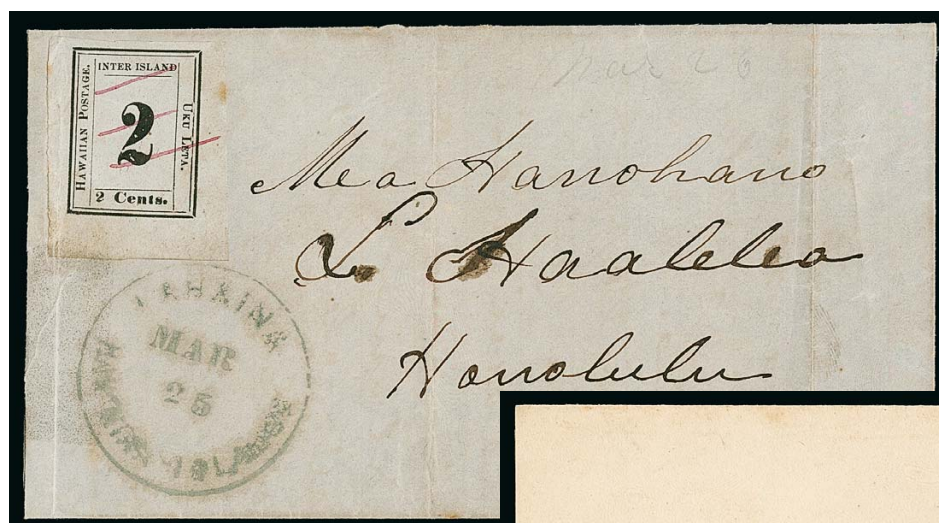 INTER ISLAND
HAWAIIAN POSTAGE.
2
UKU LETA.
2 Cents.
Mar 26
Mea Hanohano
L. Haalelea
Honolulu
LAHAINA
MAR
25
HAWAIIAN ISLANDS